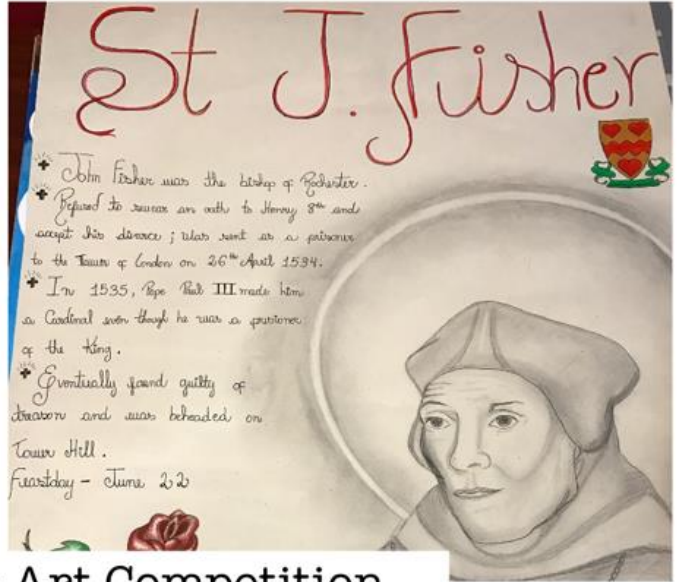 St J. Fisher
John Fisher was the bishop of Rochester.
Refused to swear an oath to Henry 8th and
accept his divorce; was sent as a prisoner
to the Tower of London on 26th April 1534.
In 1535, Pope Paul III made him
a Cardinal even though he was a prisioner
of the King.
Eventually found guilty of
treason and was beheaded on
Tower Hill.
Feastday - June 22
Art Competition